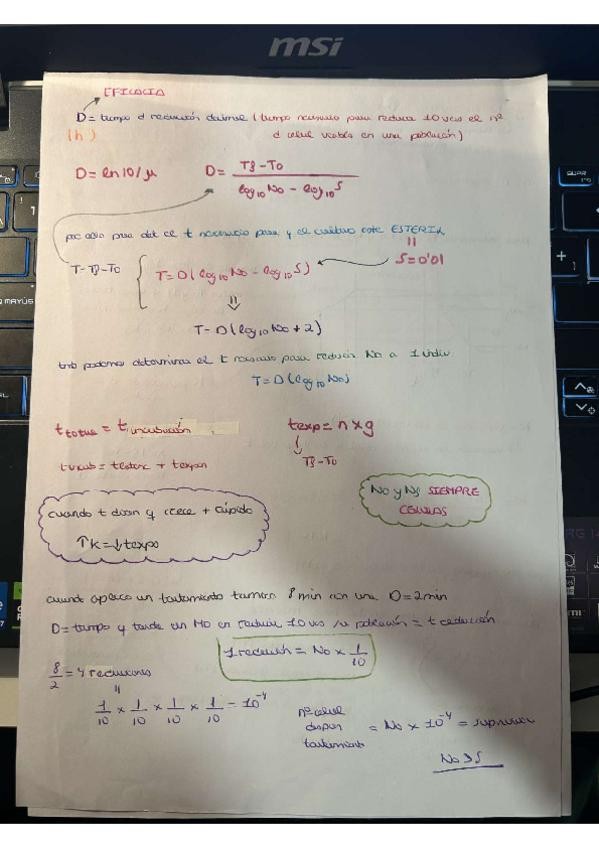 msi
EFICACIA
D = tiempo d reducción decimal (tiempo necesario para reducir 10 veces el nº
(h)
d celul viables en una población)
D = ln 10/μ
D = Tf - To / log10 No - log10 S
para det el t necesario para q el cultivo este ESTERIL
S = 0'01
T = Tf - To
T = D (log10 No - log10 S)
T = D (log10 No + 2)
tmb podemos determinar el t necesario para reducir No a 1 indiv
T = D (log10 No)
t totus = t incubación
texp = n x g
Tf - To
t incub = testac + texpon
No y Nf SIEMPRE
CELULAS
cuando t dism q crece + rápido
↑K = ↓texpo
cuando aplico un tratamiento termico 8 min con una D = 2 min
D = tiempo q tarda un MO en reducir 10 veces su población = t reducción
1 reducción = No x 1/10
8/2 = 4 reducciones
1/10 x 1/10 x 1/10 x 1/10 = 10⁻⁴
nº celul
despues
tratamiento
= No x 10⁻⁴ =